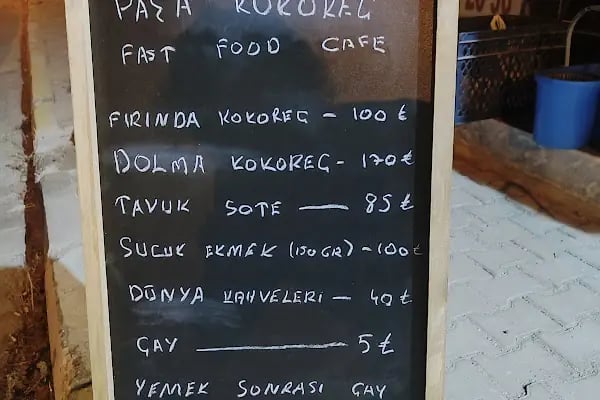 PAŞA KOKOREÇ
FAST FOOD CAFE
FIRINDA KOKOREÇ - 100 ₺
DOLMA KOKOREÇ - 170 ₺
TAVUK SOTE — 85 ₺
SUCUK EKMEK (150GR) - 100 ₺
DÜNYA KAHVELERİ - 40 ₺
ÇAY — 5 ₺
YEMEK SONRASI ÇAY